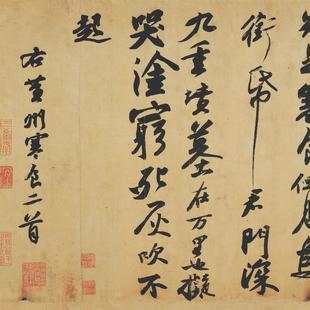 是寒食但見烏
銜帋君門深
九重墳墓在万里也擬
哭塗窮死灰吹不
起
右黃州寒食二首